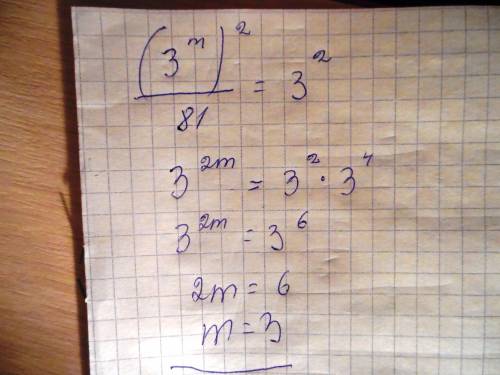 (3^m)^2 / 81 = 3^2
3^2m = 3^2 · 3^4
3^2m = 3^6
2m = 6
m = 3